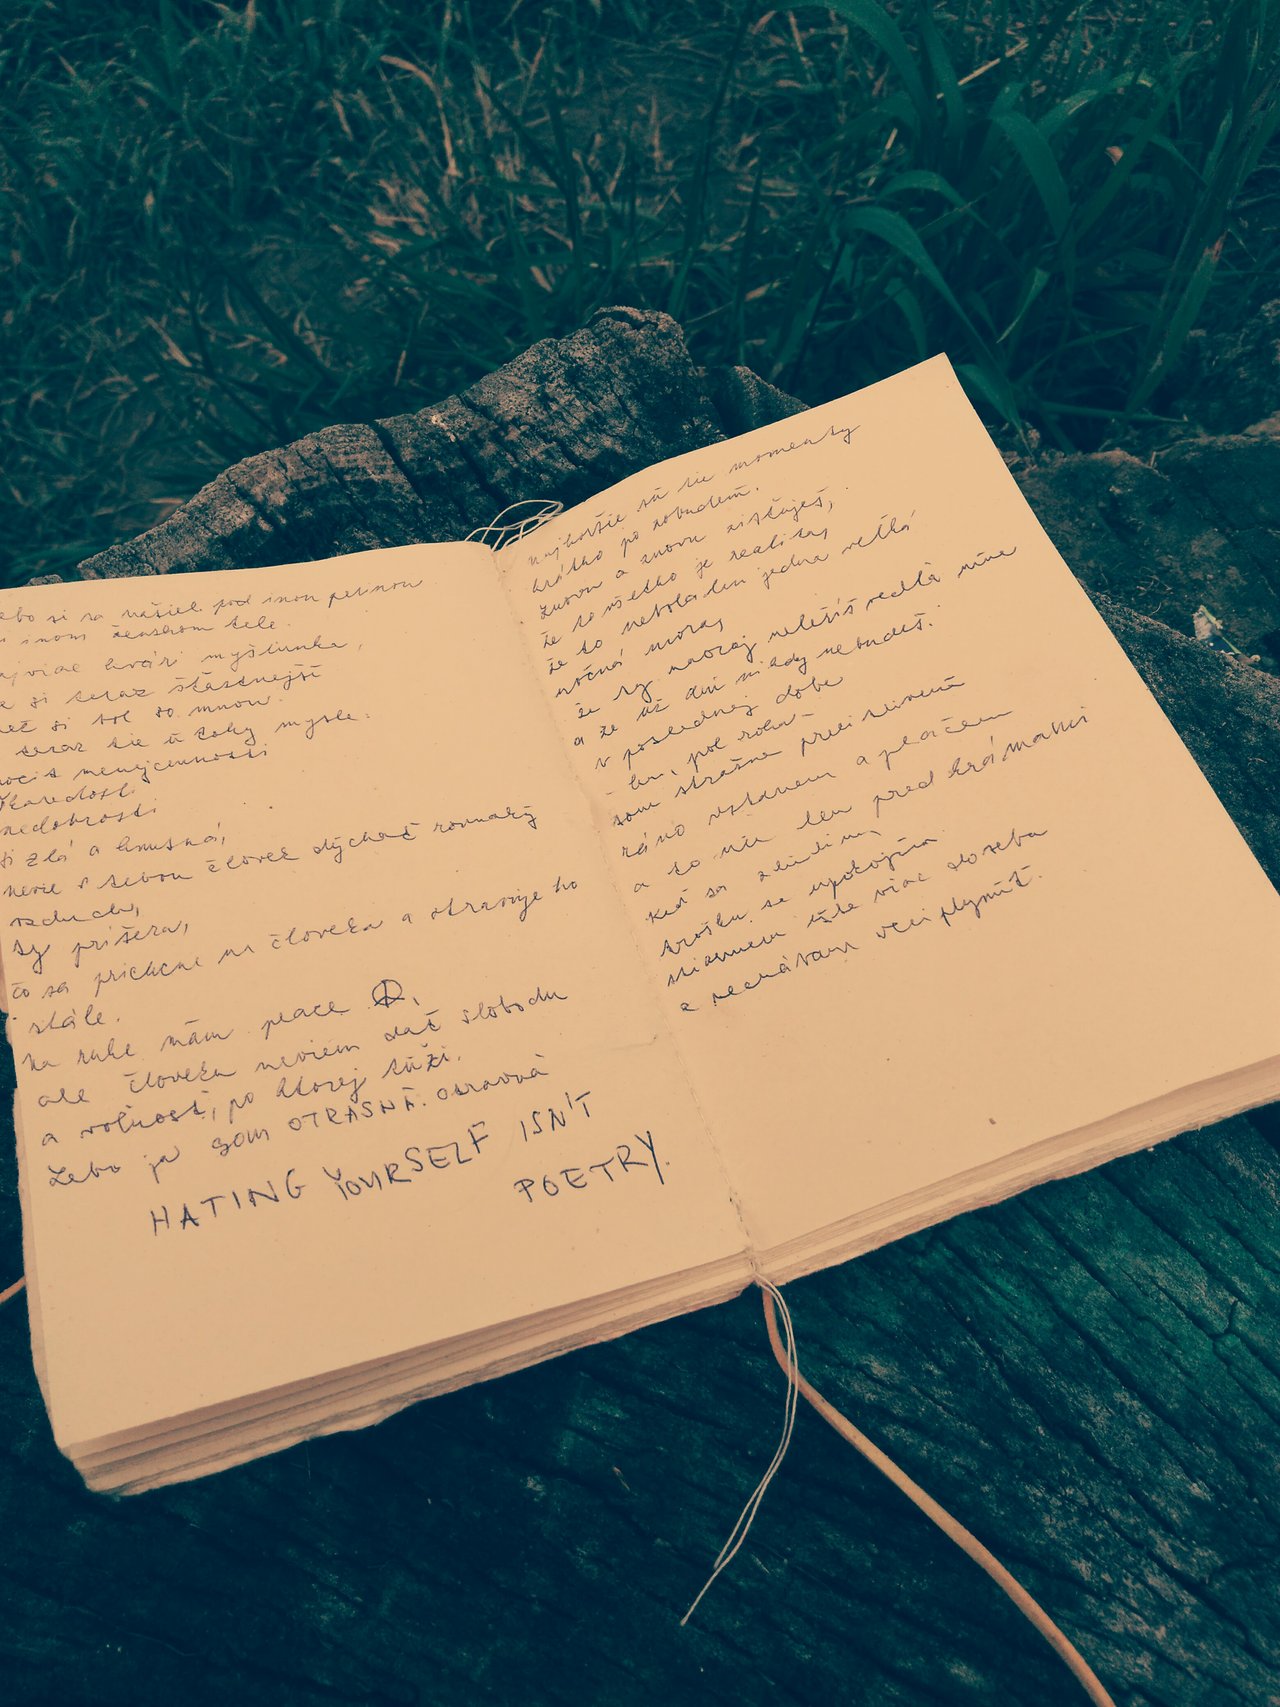 lebo si sa našiel pod inou perinou
inom ženskom tele.
najviac kvári myšlienka,
že si teraz šťastnejší
než si bol so mnou.
teraz tie úlohy mysle:
pocit menejcennosti
škaredosti
nedobrosti
si zlá a hnusná,
nevie s tebou človek dýchať rovnaký
vzduch,
ty príšera,
čo sa prichytí na človeka a otravuje ho
stále.
na ruke mám peace ☮,
ale človeku neviem dať slobodu
a voľnosť, po ktorej túži.
Lebo ja som OTRASNÁ. otravná
HATING YOURSELF ISN'T
POETRY.
najhoršie sú tie momenty
krátko po zobudení.
znovu a znovu zisťuješ,
že to všetko je realita,
že to nebola len jedna veľká
nočná mora,
že ty naozaj neležíš vedľa mňa
a že už ani nikdy nebudeš.
v poslednej dobe
- len, pol roka -
som strašne precitlivená
ráno vstanem a plačem
a to nie len pred krámami
keď sa
trošku sa upokojím
stiahnem ešte viac do seba
a nechávam veci plynúť.